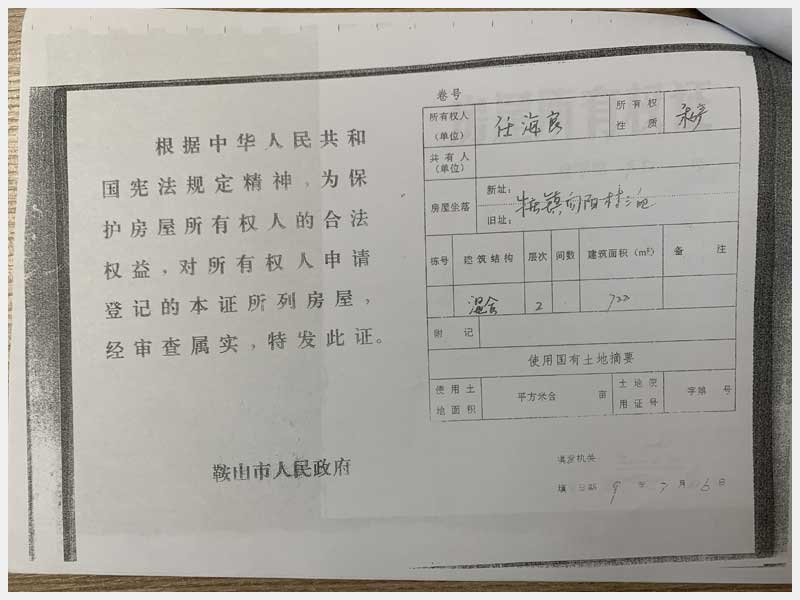 根据中华人民共和
国宪法规定精神，为保
护房屋所有权人的合法
权益，对所有权人申请
登记的本证所列房屋，
经审查属实，特发此证。
鞍山市人民政府
卷号
所有权人
(单位)
任海良
所有权
性质
共有人
(单位)
房屋坐落
新址：
旧址：
镇向阳村
栋号 建筑结构 层次 间数 建筑面积 (m²) 备注
混合 2
附记
使用国有土地摘要
使用土
地面积
平方米合 亩
土地使
用证号
字第 号
填发机关
填发日期 9 年 7 月 6 日